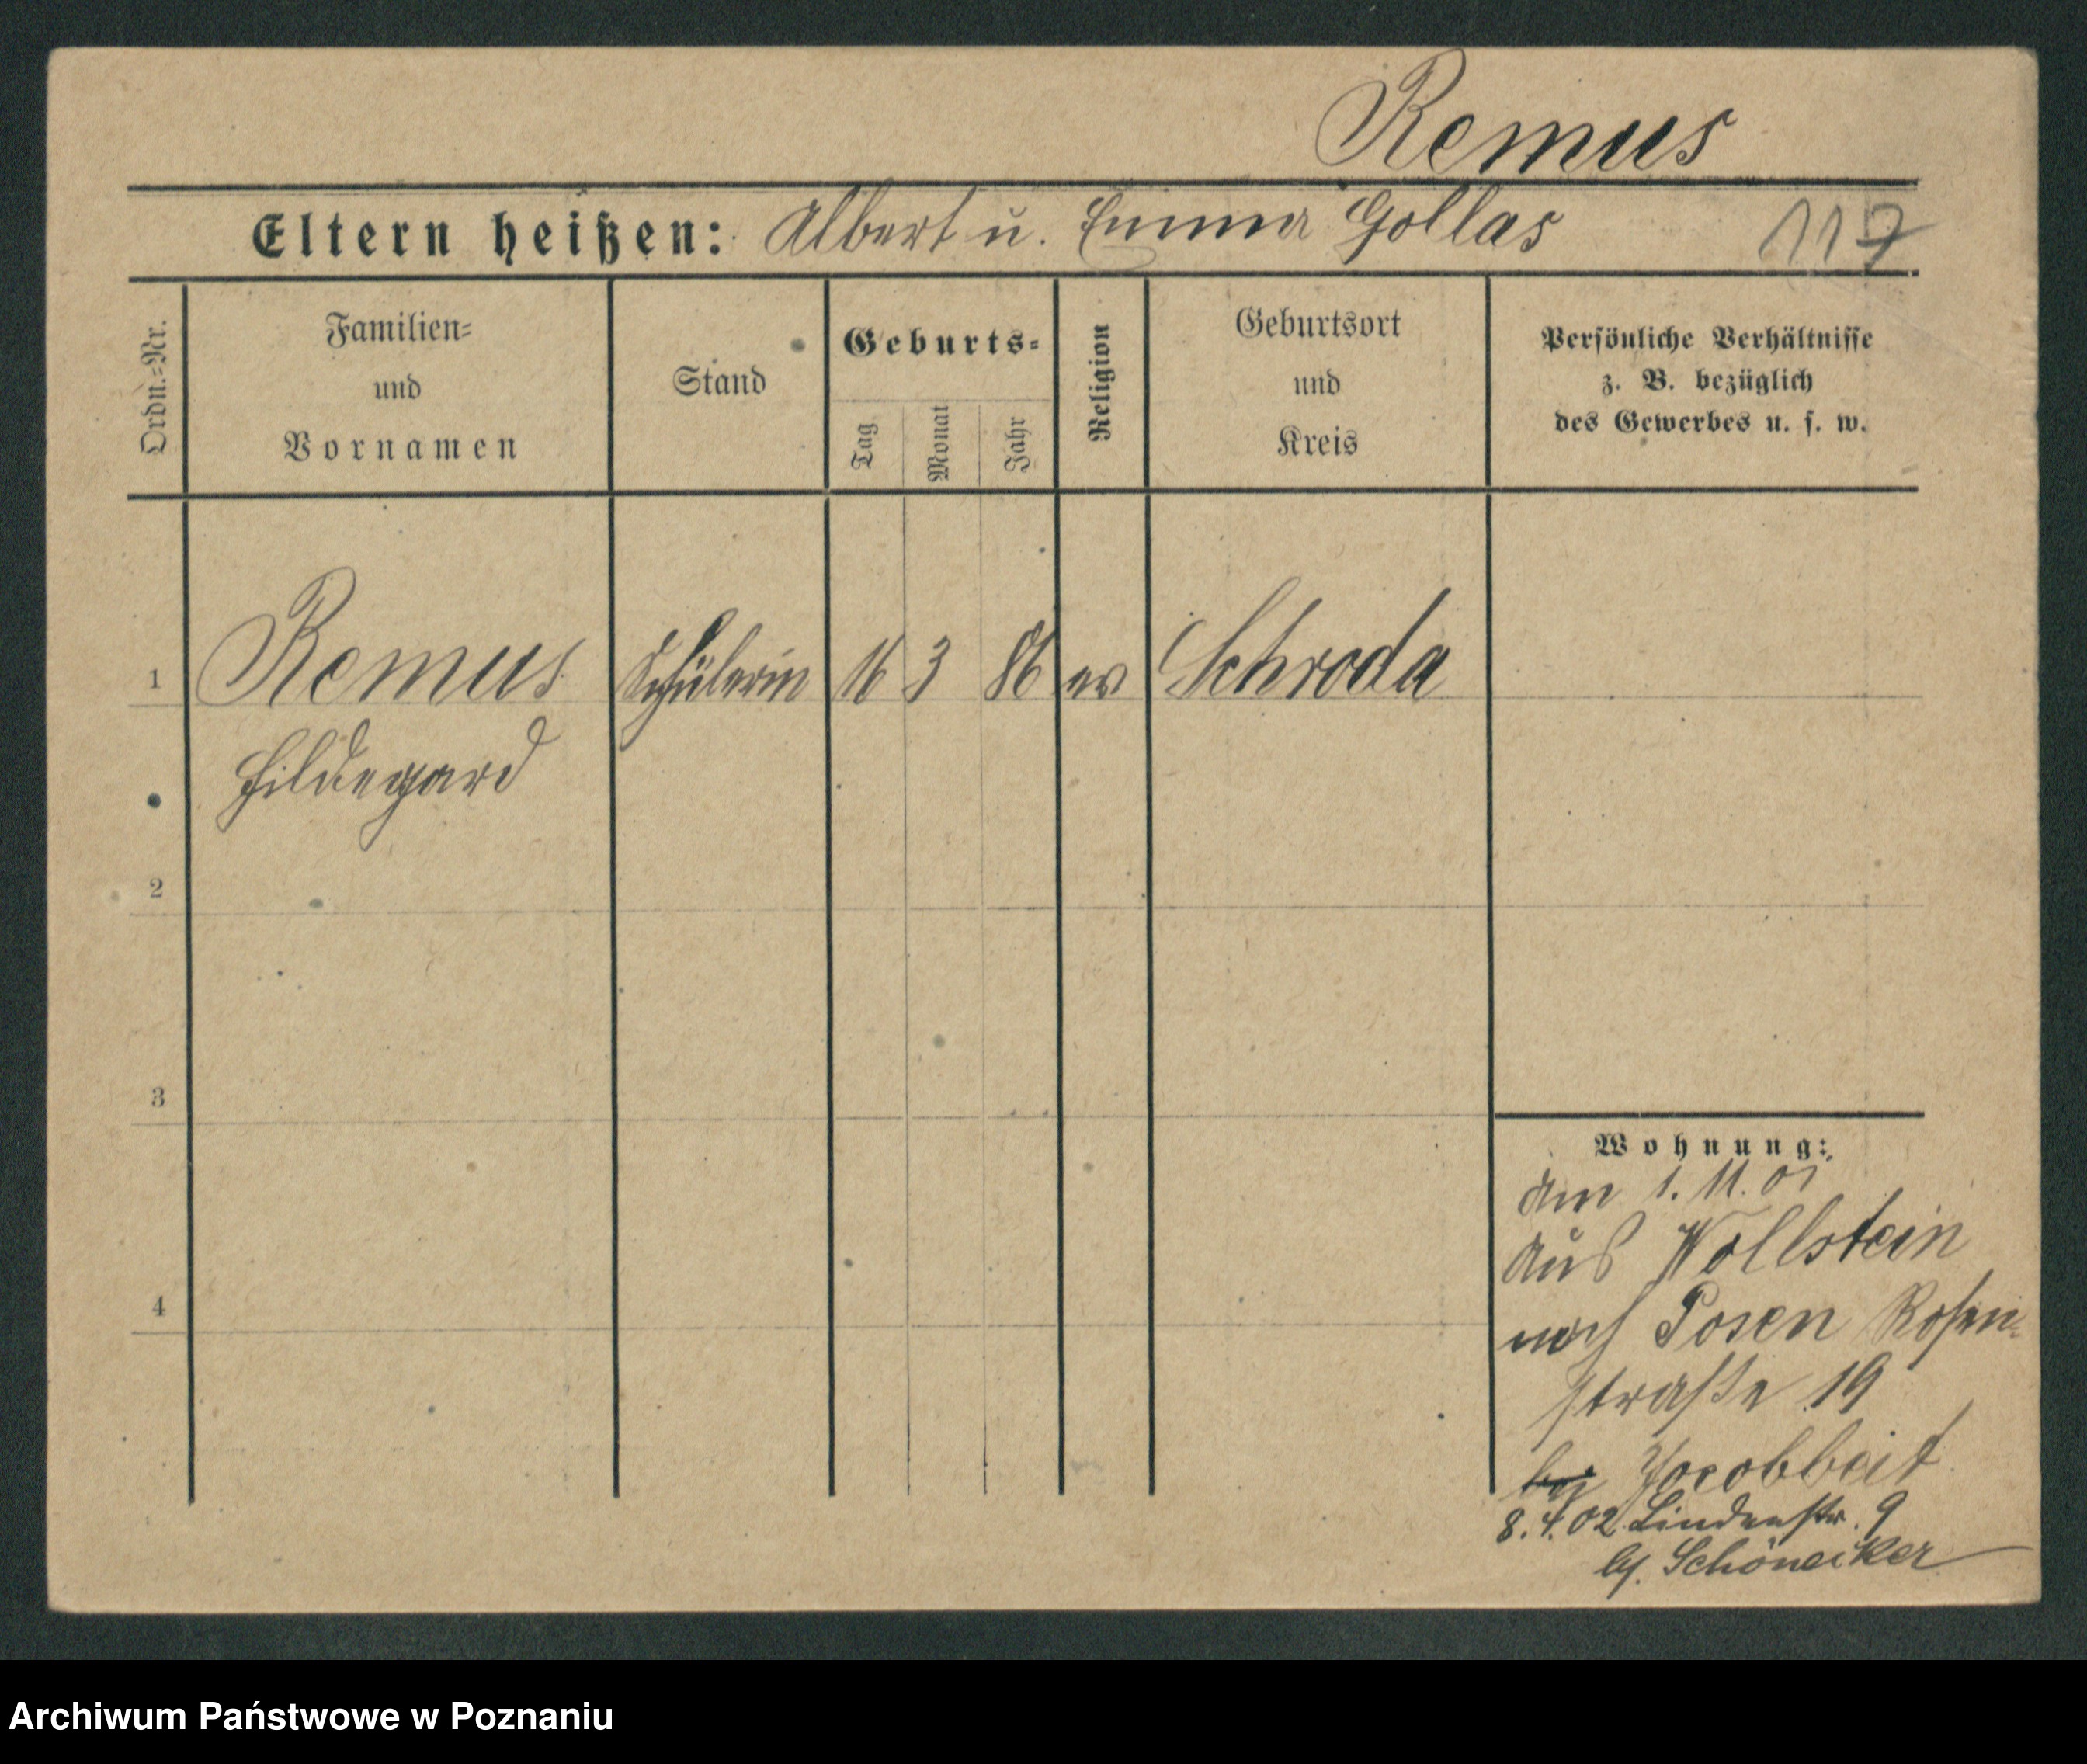 Remus
Eltern heißen: Albert u. Emma Gollas 117
Ordn.-Nr.
Familien-
und
Vornamen
Stand
Geburts-
Tag
Monat
Jahr
Religion
Geburtsort
und
Kreis
Persönliche Verhältnisse
z. B. bezüglich
des Gewerbes u. s. w.
1 Remus Schülerin 16 3 86 ev Schroda
Hildegard
2
3
4
Wohnung:
am 1. 11. 01
aus Wollstein
nach Posen Rosen-
straße 19
bei
8. 4. 02 Lindenstr. 9
bei Schönecker
Archiwum Państwowe w Poznaniu